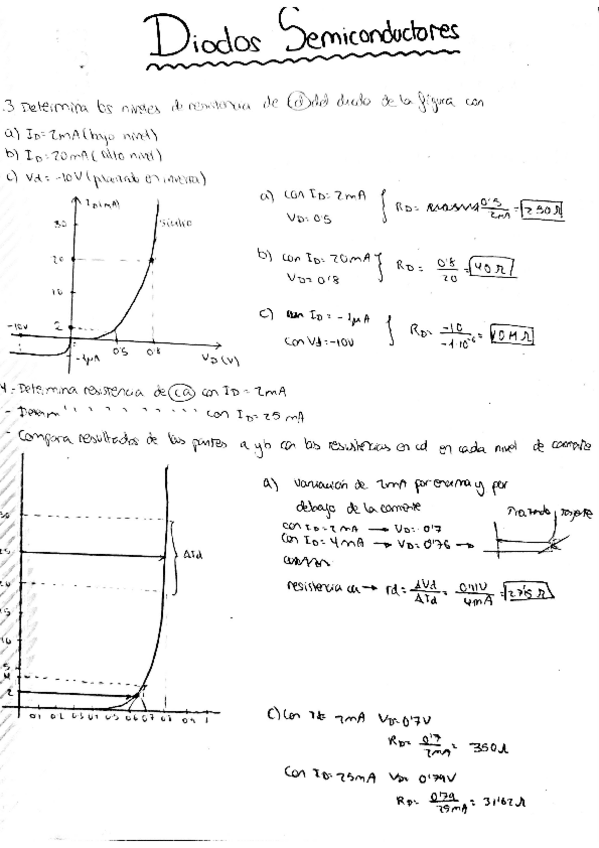 Diodos Semiconductores
3 Determina los niveles de resistencia de cd del diodo de la figura con
a) ID = 2mA (bajo nivel)
b) ID = 20mA (alto nivel)
c) Vd = -10V (polarizado en inversa)
ID (mA)
Silicio
30
20
10
2
-10V
-1μA
0'5
0'8
VD (V)
a) con ID = 2mA
VD = 0'5
RD = 0'5 / 2mA = 250 Ω
b) con ID = 20mA
VD = 0'8
RD = 0'8 / 20 = 40 Ω
c) ID = -1μA
con Vd = -10V
RD = -10 / -1·10⁻⁶ = 10MΩ
4.- Determina resistencia de ca con ID = 2mA
- Determ ' ' ' ' ' ' ' con ID = 25 mA
- Compara resultados de las partes a y b con las resistencias en cd en cada nivel de corriente
30
25
20
15
10
5
4
2
ΔId
0.1 0.2 0.3 0.4 0.5 0.6 0.7 0.8 0.9 1
a) variación de 2mA por encima y por
debajo de la corriente
con ID = 2mA → VD = 0'7
con ID = 4mA → VD = 0'76 →
resistencia ca → rd = ΔVd / ΔId = 0'11V / 4mA = 27'5 Ω
c) Con Id = 2mA VD = 0'7V
RD = 0'7 / 2mA = 350Ω
Con ID = 25mA VD = 0'79V
RD = 0'79 / 25mA = 31'62Ω